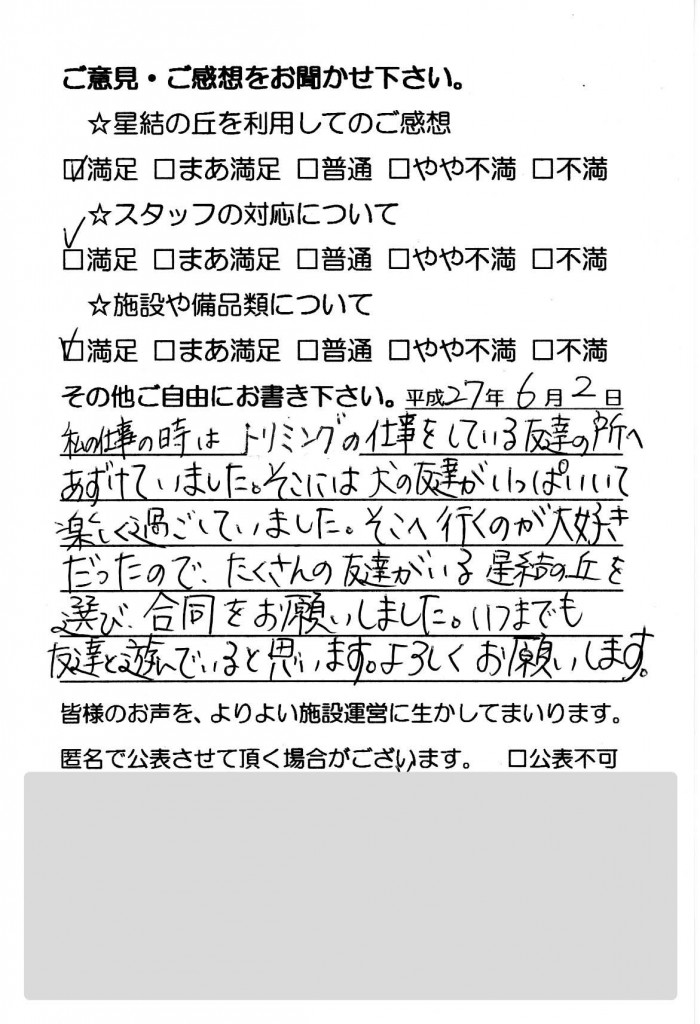 ご意見・ご感想をお聞かせ下さい。
☆星結の丘を利用してのご感想
☑満足 □まあ満足 □普通 □やや不満 □不満
☆スタッフの対応について
☑満足 □まあ満足 □普通 □やや不満 □不満
☆施設や備品類について
☑満足 □まあ満足 □普通 □やや不満 □不満
その他ご自由にお書き下さい。平成27年6月2日
私の仕事の時は トリミングの仕事をしている友達の所へ
あずけていました。そこには犬の友達がいっぱいいて
楽しく過ごしていました。そこへ行くのが大好き
だったので、たくさんの友達がいる星結の丘を
選び、合同をお願いしました。いつまでも
友達と遊んでいると思います。よろしくお願いします。
皆様のお声を、よりよい施設運営に生かしてまいります。
匿名で公表させて頂く場合がございます。 □公表不可